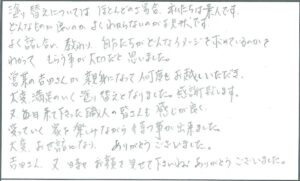 塗り替えについては ほとんどの場合、私たちは素人です。
どんなものが良いのか よくわからないのが現状です。
よく話し合い、教わり、自分たちがどんなイメージを求めているのかを
わかって もらう事が大切だと思いました。
営業の吉田さんが 親身になって何度もお越しいただき、
大変満足のいく塗り替えとなりました。感謝致します。
又 毎日来て下さった職人の皆さんも 感じが良く、
変っていく家を楽しみながら待つ事が出来ました。
大変、お世話になり、 ありがとうございました。
吉田さん、又 お顔を見せて下さいね ありがとうございました。